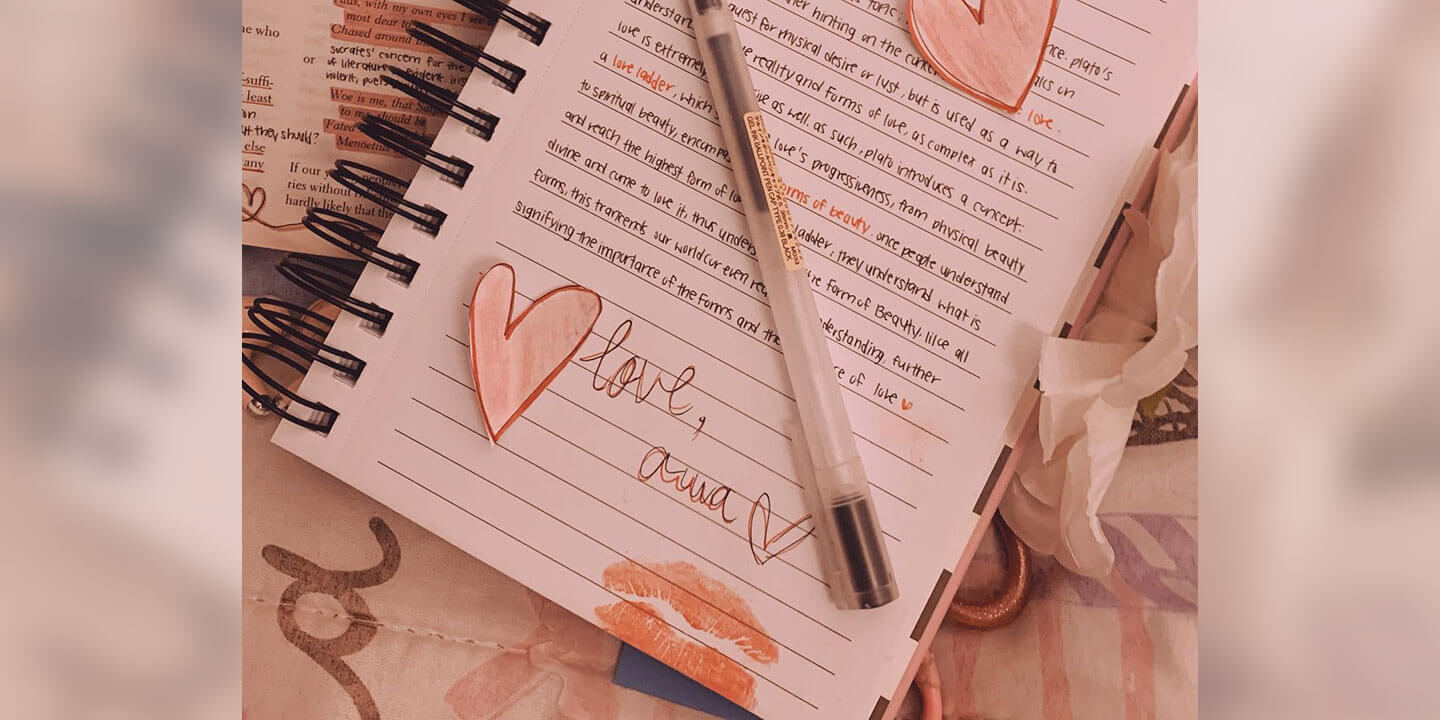 with my own eyes I see
most dear to
Chased around
e who
socrates' concern for the
or
of literature
-suffi-
least
Woe is me, that
to me should be
on
Fated
ut they should?
Menoetius
else
any
If our
ries without
hardly likely that the
topic.
nce. plato's
her hinting on the
alks on
love.
quest for physical desire or lust, but is used as a way to
reality and Forms of love, as complex as it is.
love is extremely as well. as such, plato introduces a concept:
a love ladder, which love's progressiveness, from physical beauty
to spiritual beauty, orms of beauty. once people understand
and reach the highest form of ladder, they understand what is
divine and come to love it, thus unders he form of Beauty. like all
forms, this trancends our world(or even nderstanding, further
signifying the importance of the Forms and the ce of love
GEL INK BALLPOINT PEN CAP TYPE 0.38 BLACK
love,
anna